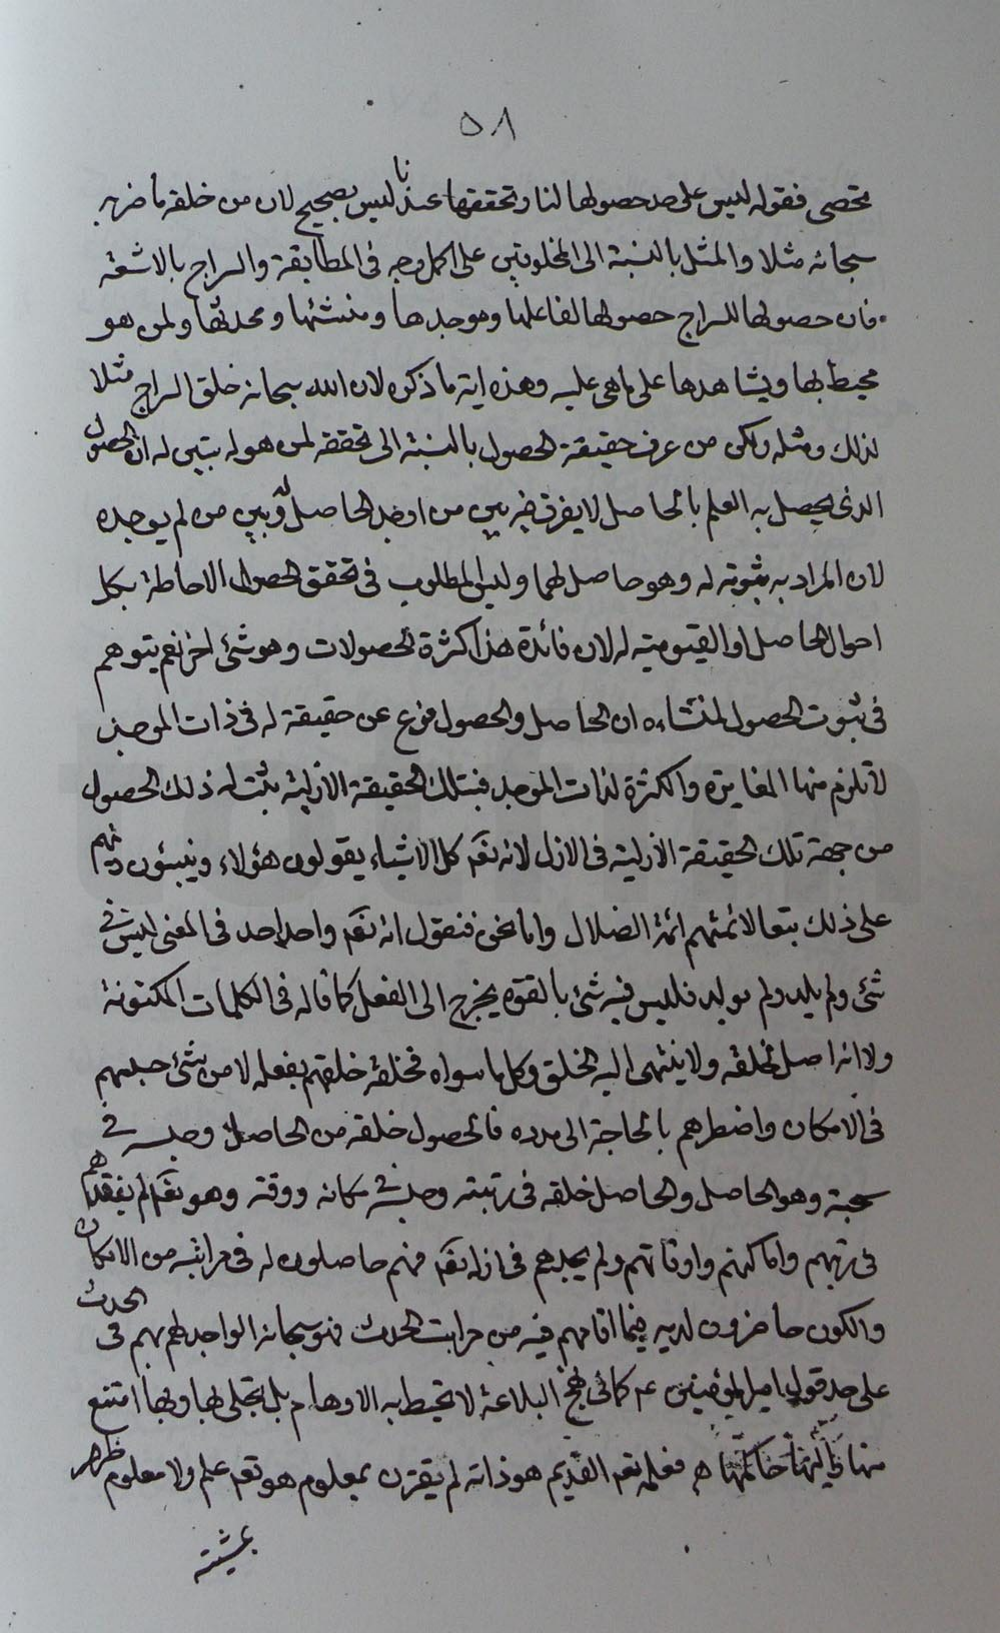 ٥٨
تحصى فقوله ليس على حد حصولها لنا وتحققها عندنا ليس بصحيح لان من خلقه ما ضربه
سبحانه مثلا والمثل بالنسبة الى المخلوقين على اكمل وجه فى المطابقة والسراج بالاشعة
فان حصولها للسراج حصولها لفاعلها وموجدها ومنشئها ومحدثها ولمن هو
محيط بها ويشاهدها على ما هى عليه وهذه اية ما ذكره لان الله سبحانه خلق السراج مثلا
لذلك ومثله ولكن من عرف حقيقة الحصول بالنسبة الى تحققه لمن هو له يتبين له ان الحصول
الذى يحصل به العلم بالحاصل لا يفرق فيه بين من اوجد الحاصل له وبين من لم يوجده
لان المراد به ثبوته له وهو حاصل لهما وليس المطلوب فى تحقق الحصول الاحاطة بكل
احوال الحاصل او القيومية له لان فائدة هذا كثرة الحصولات وهو شئ اخر نعم يتوهم
فى ثبوت الحصول لمنشاءه ان الحاصل والحصول فرع عن حقيقة له فى ذات الموجد
لا تلزم منها المغايرة والكثرة لذات الموجد فبتلك الحقيقة الازلية يثبت له ذلك الحصول
من جهة تلك الحقيقة الازلية فى الازل لانه تعم كل الاشياء يقولون هؤلاء ويبنون دينهم
على ذلك تبعا لائمتهم ائمة الضلال واما نحن فنقول انه تعم واحد احد فى المعنى ليس فى
شئ ولم يلد ولم يولد فليس فيه شئ بالقوة يخرج الى الفعل كما قاله فى الكلمات المكنونة
ولا انه اصل لخلقه ولا ينتهى اليه الخلق وكل ما سواه فخلقه خلقهم بفعله لا من شئ حبسهم
فى الامكان واضطرهم بالحاجة الى مدده فالحصول خلقه من الحاصل وحبسه فى
سجنه وهو الحاصل والحاصل خلقه فى رتبته وحبسه فى مكانه ووقته وهو تعم لم يفقدهم
فى رتبهم واماكنهم واوقاتهم ولم يجدهم فى ازله تعم فهم حاصلون له فى مراتبه من الامكان
والكون حاضرون لديه فيما اقامهم فيه من مراتب الحدث فهو سبحانه الواجد لهم بهم فى الحدث
على حد قول امير المؤمنين عم كما فى نهج البلاغة لا تحيط به الاوهام بل تجلى لها وبها امتنع
منها واليها حاكمها هـ فعلمه تعم القديم هو ذاته لم يقترن بمعلوم هو تعم علم ولا معلوم